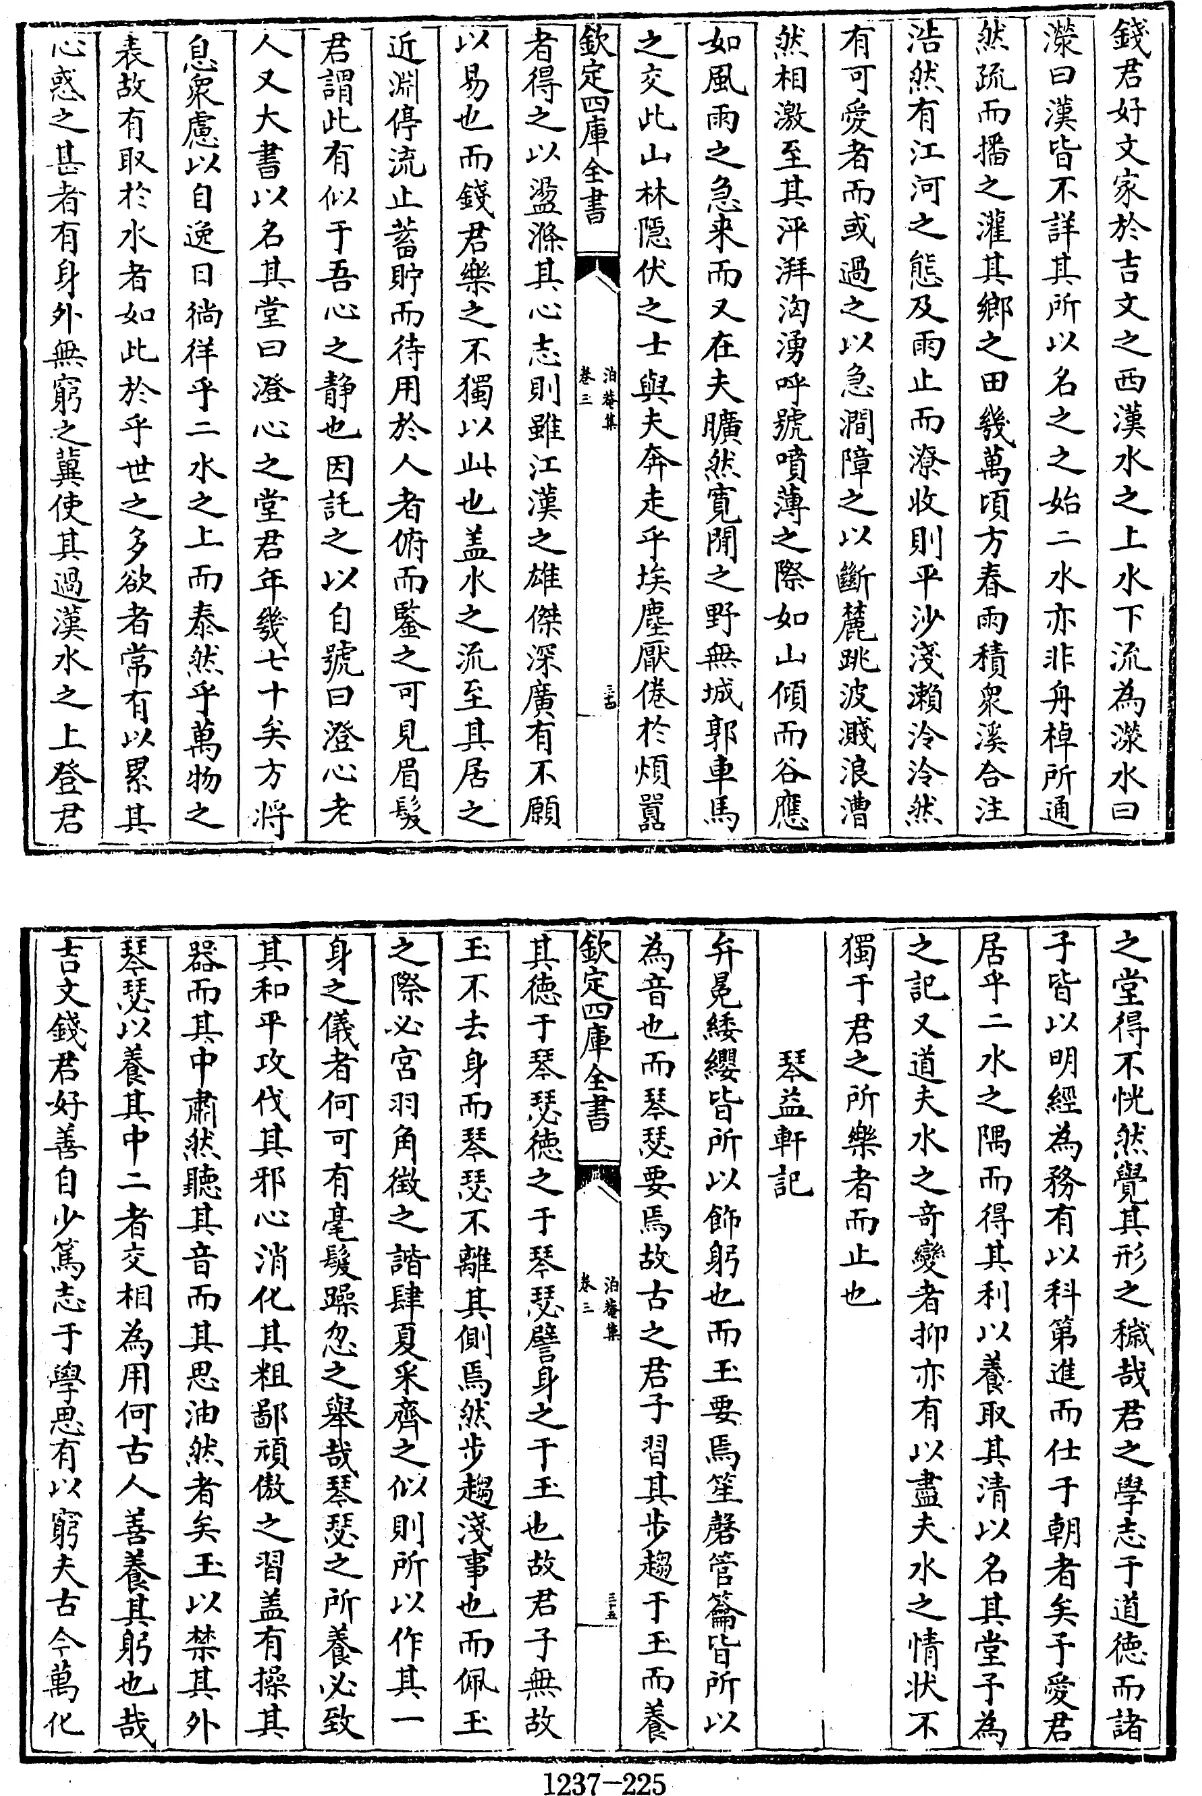 錢君好文家於吉文之西漢水之上水下流為濚水曰
濚曰漢皆不詳其所以名之之始二水亦非舟棹所通
然疏而播之灌其鄉之田幾萬頃方春雨積衆溪合注
浩然有江河之態及雨止而潦收則平沙淺瀨泠泠然
有可愛者而或過之以急澗障之以斷麓跳波濺浪漕
然相激至其泙湃洶湧呼號噴薄之際如山傾而谷應
如風雨之急來而又在夫曠然寬閒之野無城郭車馬
之交此山林隱伏之士與夫奔走乎埃塵厭倦於煩囂
欽定四庫全書
泊菴集
卷三
三十四
者得之以盪滌其心志則雖江漢之雄傑深廣有不願
以易也而錢君樂之不獨以此也盖水之流至其居之
近淵停流止蓄貯而待用於人者俯而鑒之可見眉髮
君謂此有似于吾心之靜也因託之以自號曰澄心老
人又大書以名其堂曰澄心之堂君年幾七十矣方將
息衆慮以自逸日徜徉乎二水之上而泰然乎萬物之
表故有取於水者如此於乎世之多欲者常有以累其
心惑之甚者有身外無窮之冀使其過漢水之上登君
之堂得不恍然覺其形之穢哉君之學志于道德而諸
子皆以明經為務有以科第進而仕于朝者矣予愛君
居乎二水之隅而得其利以養取其清以名其堂予為
之記又道夫水之奇變者抑亦有以盡夫水之情狀不
獨于君之所樂者而止也
琴益軒記
弁冕緌纓皆所以飾躬也而玉要焉笙磬管籥皆所以
為音也而琴瑟要焉故古之君子習其步趨于玉而養
欽定四庫全書
泊菴集
卷三
三十五
其德于琴瑟德之于琴瑟譬身之于玉也故君子無故
玉不去身而琴瑟不離其側焉然步趨淺事也而佩玉
之際必宮羽角徵之諧肆夏采齊之似則所以作其一
身之儀者何可有毫髮躁忽之舉哉琴瑟之所養必致
其和平攻伐其邪心消化其粗鄙頑傲之習盖有操其
器而其中肅然聽其音而其思油然者矣玉以禁其外
琴瑟以養其中二者交相為用何古人善養其躬也哉
吉文錢君好善自少篤志于學思有以窮夫古今萬化
1237-225